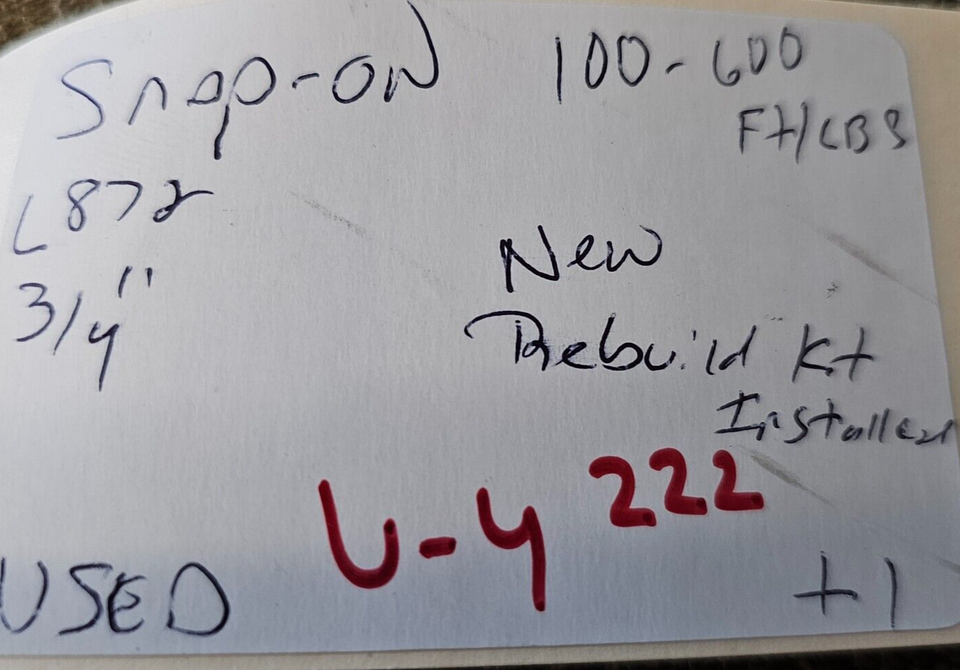 Snap-on 100-600
Ft/LBS
L872
3/4"
New
Rebuild Kit
Installed
U-4 222
USED +1